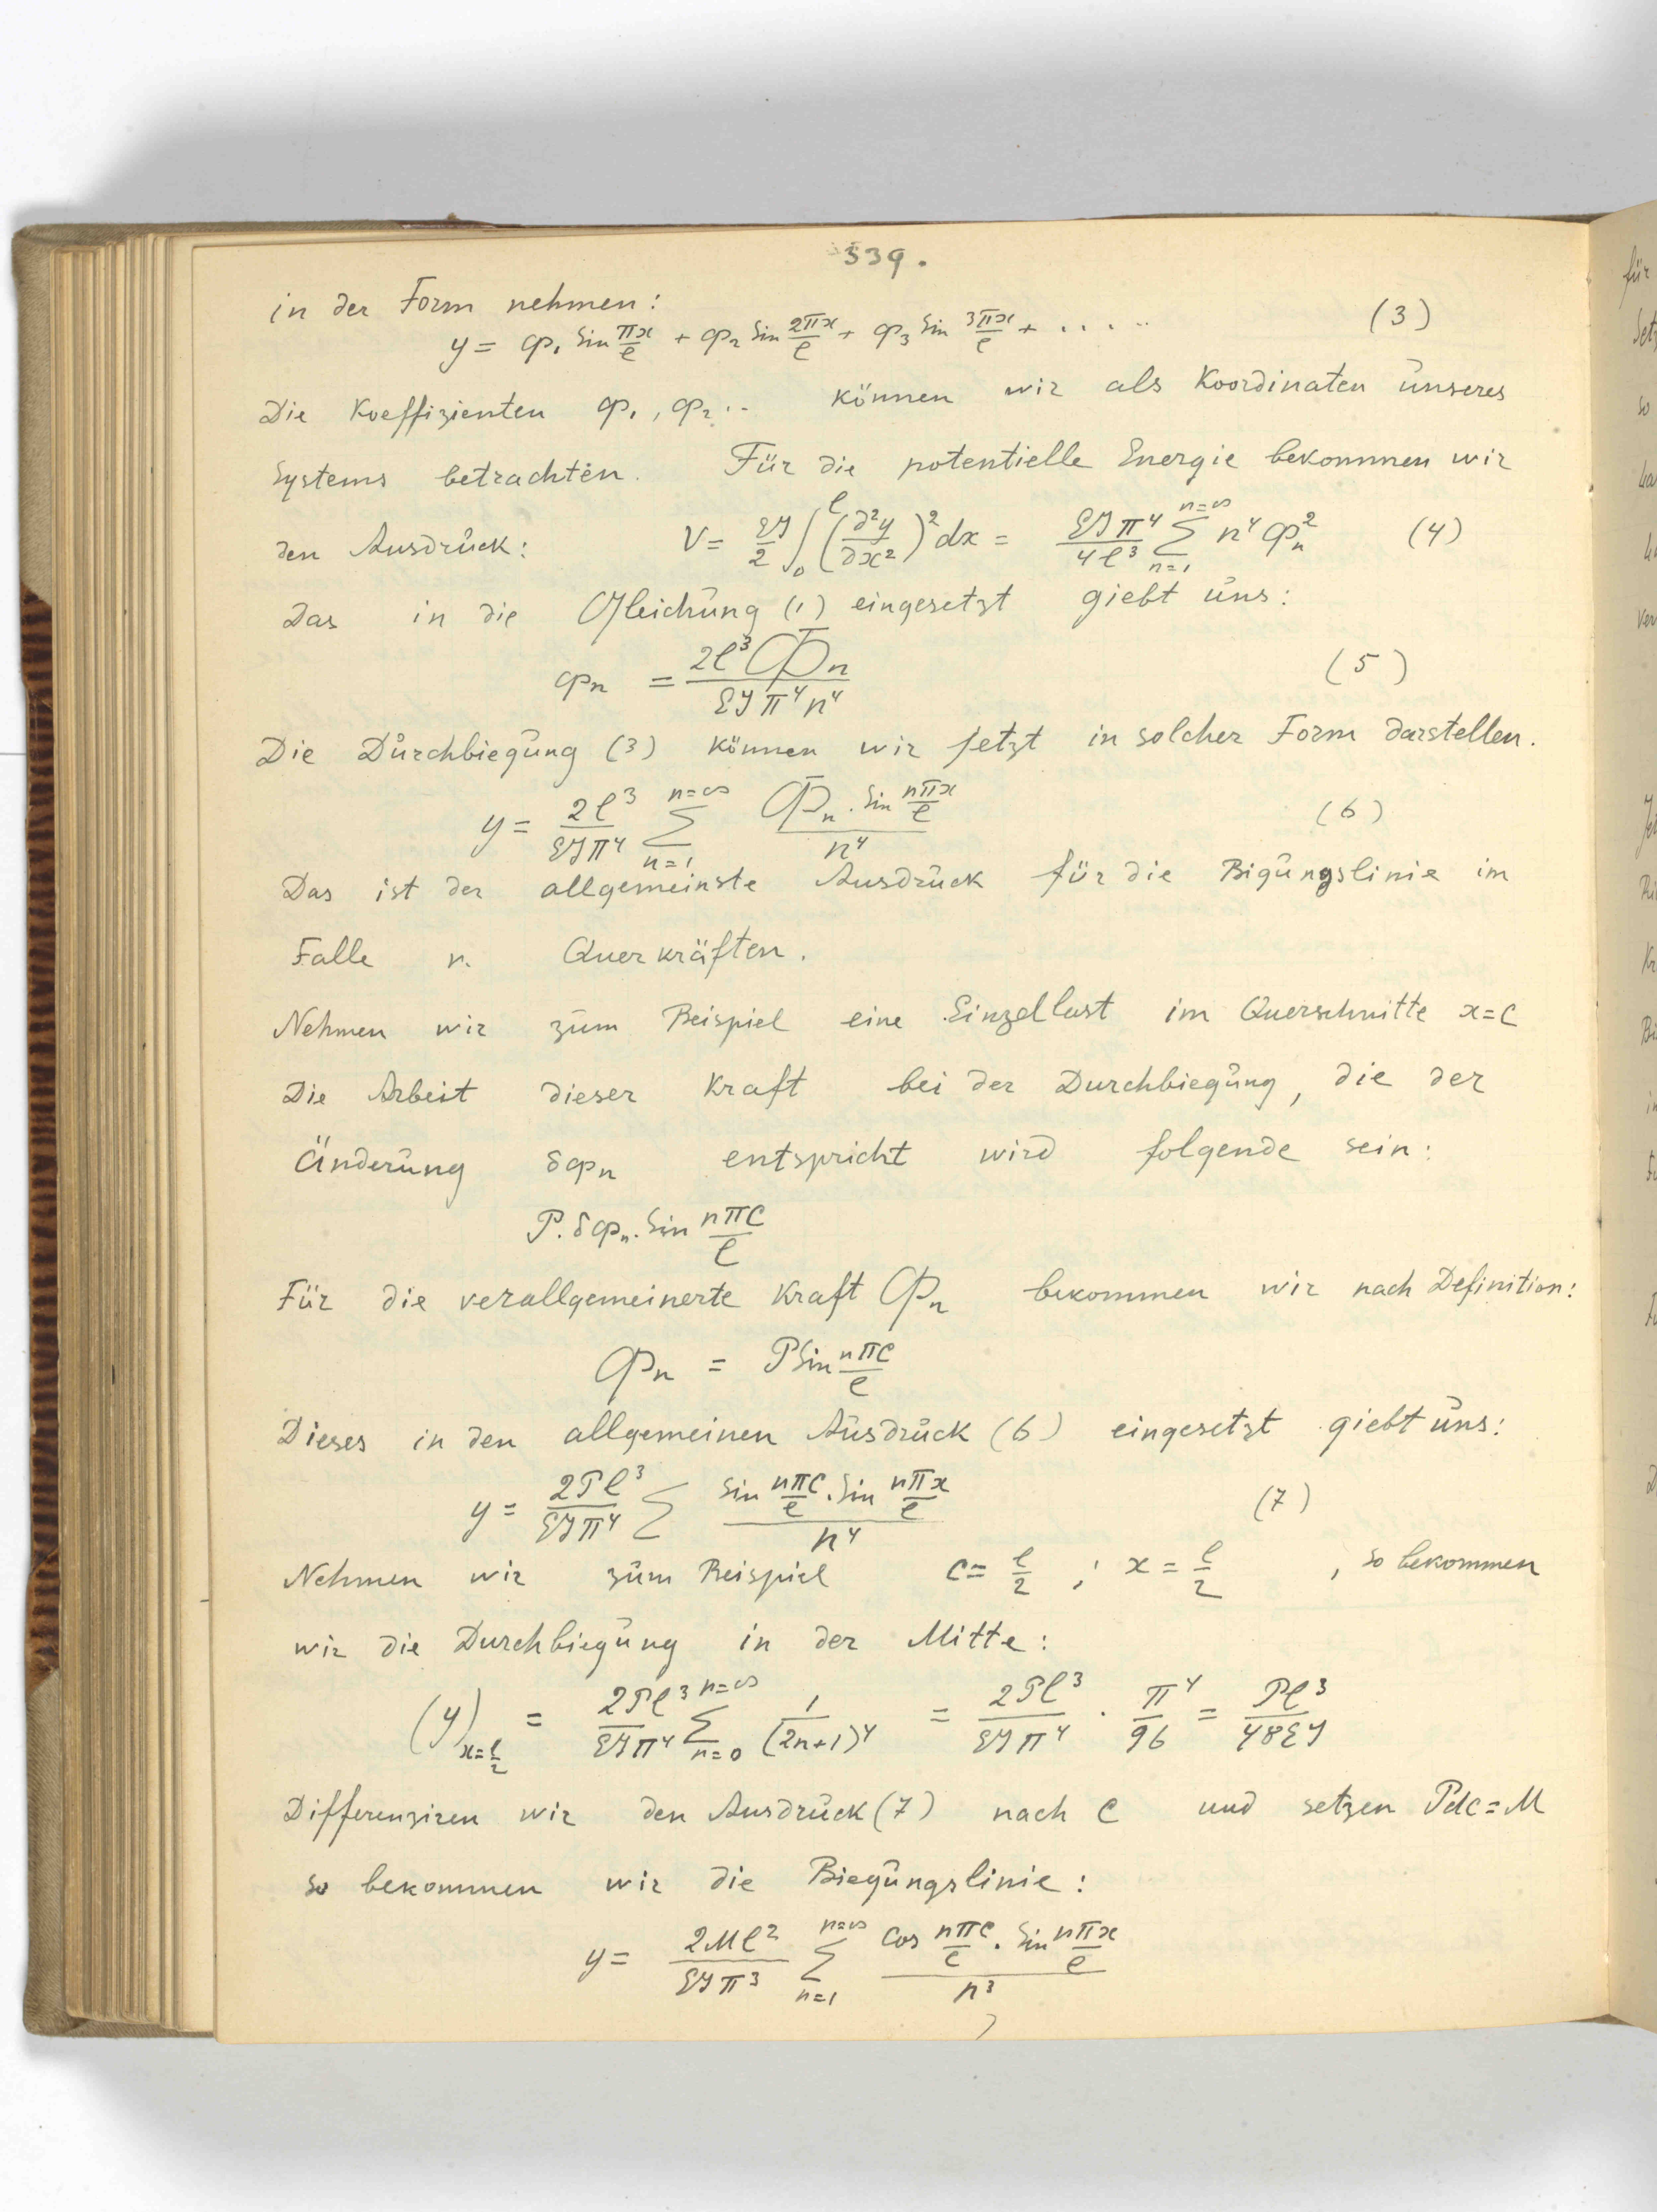 339.
in der Form nehmen:
y = φ₁ Sin πx/l + φ₂ Sin 2πx/l + φ₃ Sin 3πx/l + ..... (3)
Die Koeffizienten φ₁, φ₂ .. können wir als Koordinaten unseres
Systems betrachten. Für die potentielle Energie bekommen wir
den Ausdruck: V = EJ/2 ∫₀ˡ (∂²y/∂x²)² dx = EJπ⁴/4l³ Σ_{n=1}^{n=∞} n⁴ φₙ² (4)
Das in die Gleichung (1) eingesetzt giebt uns:
φₙ = 2l³Φₙ/EJπ⁴n⁴ (5)
Die Durchbiegung (3) können wir jetzt in solcher Form darstellen.
y = 2l³/EJπ⁴ Σ_{n=1}^{n=∞} Φₙ . Sin nπx/l / n⁴ (6)
Das ist der allgemeinste Ausdruck für die Bigungslinie im
Falle v. Querkräften.
Nehmen wir zum Beispiel eine Einzellast im Querschnitte x=c
Die Arbeit dieser Kraft bei der Durchbiegung, die der
Änderung δφₙ entspricht wird folgende sein:
P. δφₙ. Sin nπc/l
Für die verallgemeinerte Kraft Φₙ bekommen wir nach Definition:
Φₙ = P Sin nπc/l
Dieses in den allgemeinen Ausdruck (6) eingesetzt giebt uns:
y = 2Pl³/EJπ⁴ Σ Sin nπc/l . Sin nπx/l / n⁴ (7)
Nehmen wir zum Beispiel c = l/2 ; x = l/2 , so bekommen
wir die Durchbiegung in der Mitte:
(y)_{x=l/2} = 2Pl³/EJπ⁴ Σ_{n=0}^{n=∞} 1/(2n+1)⁴ = 2Pl³/EJπ⁴ . π⁴/96 = Pl³/48EJ
Differenziren wir den Ausdruck (7) nach c und setzen Pdc = M
so bekommen wir die Biegungslinie:
y = 2Ml²/EJπ³ Σ_{n=1}^{n=∞} Cos nπc/l . Sin nπx/l / n³